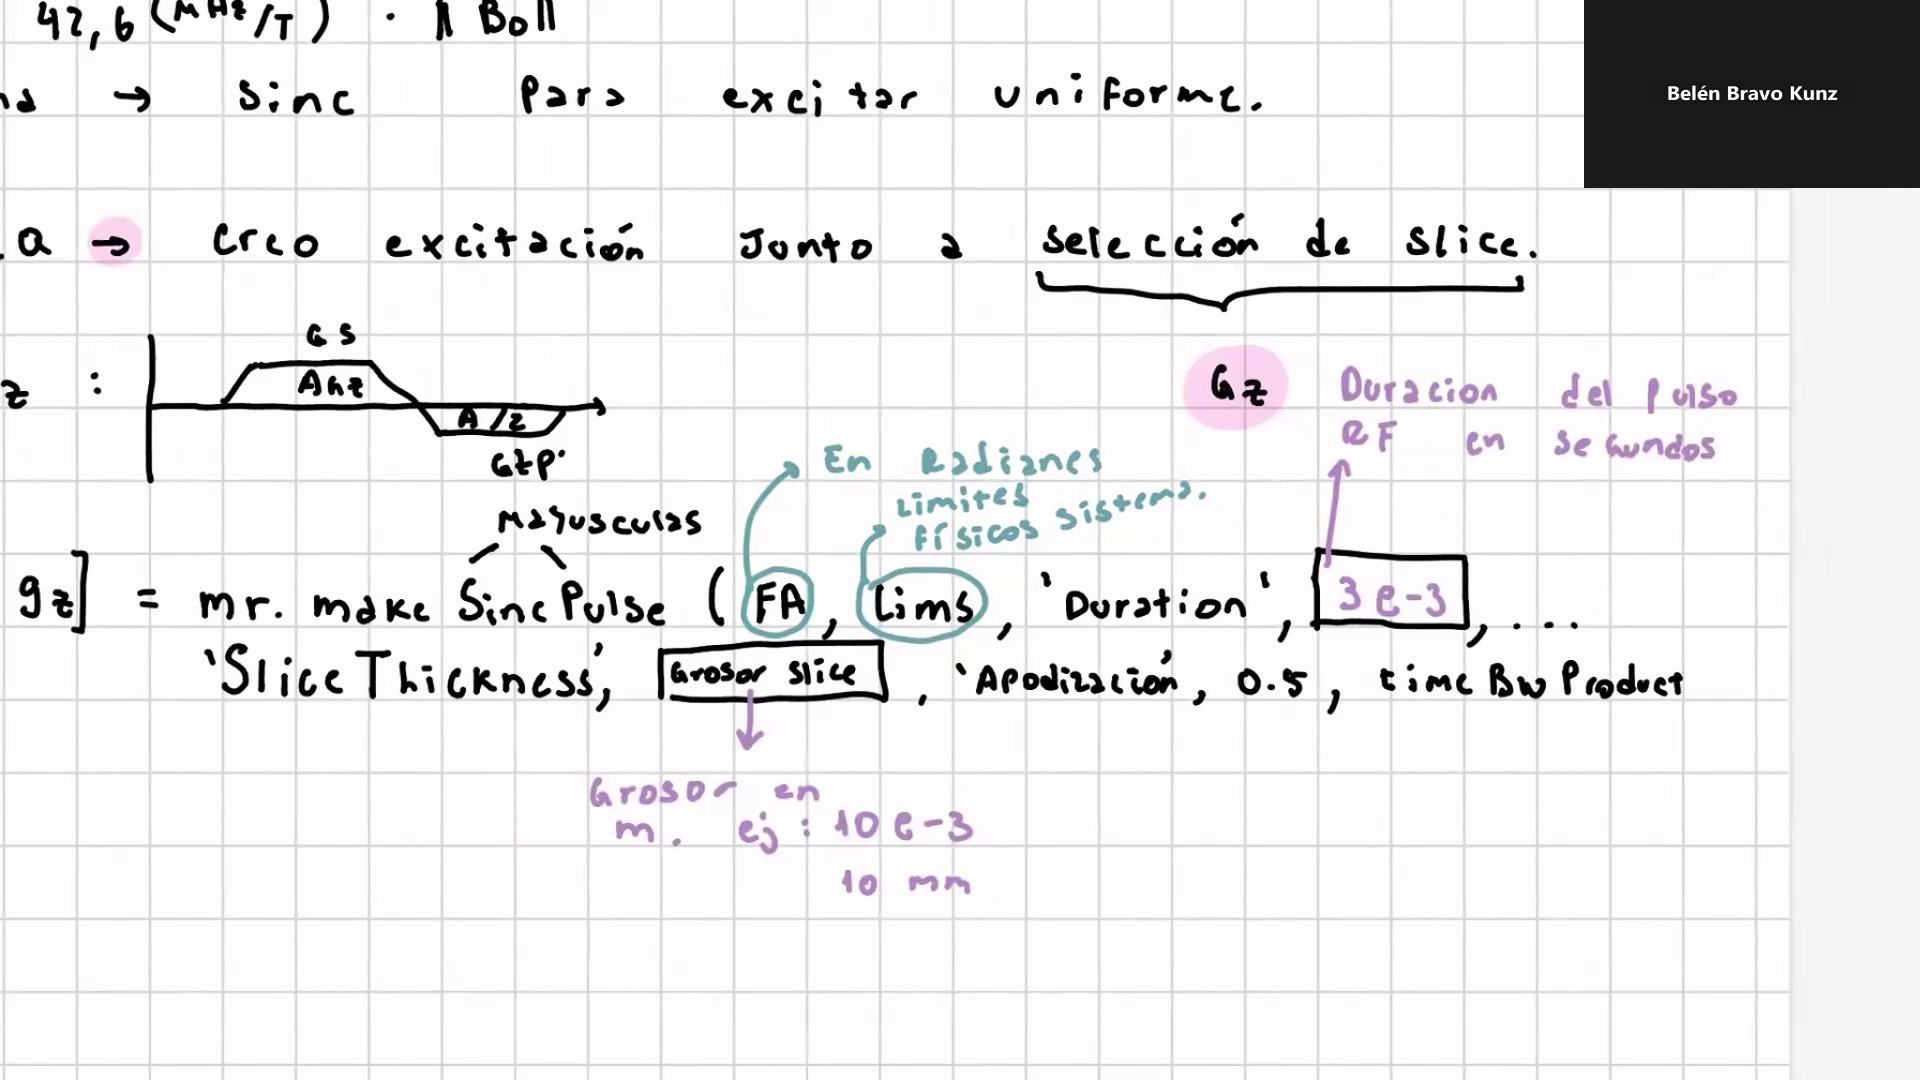 42,6 (MHz/T) · || Bo||
→ sinc para excitar uniforme.
Belén Bravo Kunz
a → creo excitación junto a selección de slice.
GS
z :
AGz
A/2
Gzp
Gz
Duracion del pulso
RF en segundos
En Radianes
Limites
físicos sistema.
Mayusculas
gz] = mr. make Sinc Pulse ( FA , Lims , 'Duration' , 3 e-3 , ...
'Slice Thickness', Grosor slice , 'Apodización', 0.5 , time Bw Product
Grosor en
m. ej : 10 e-3
10 mm